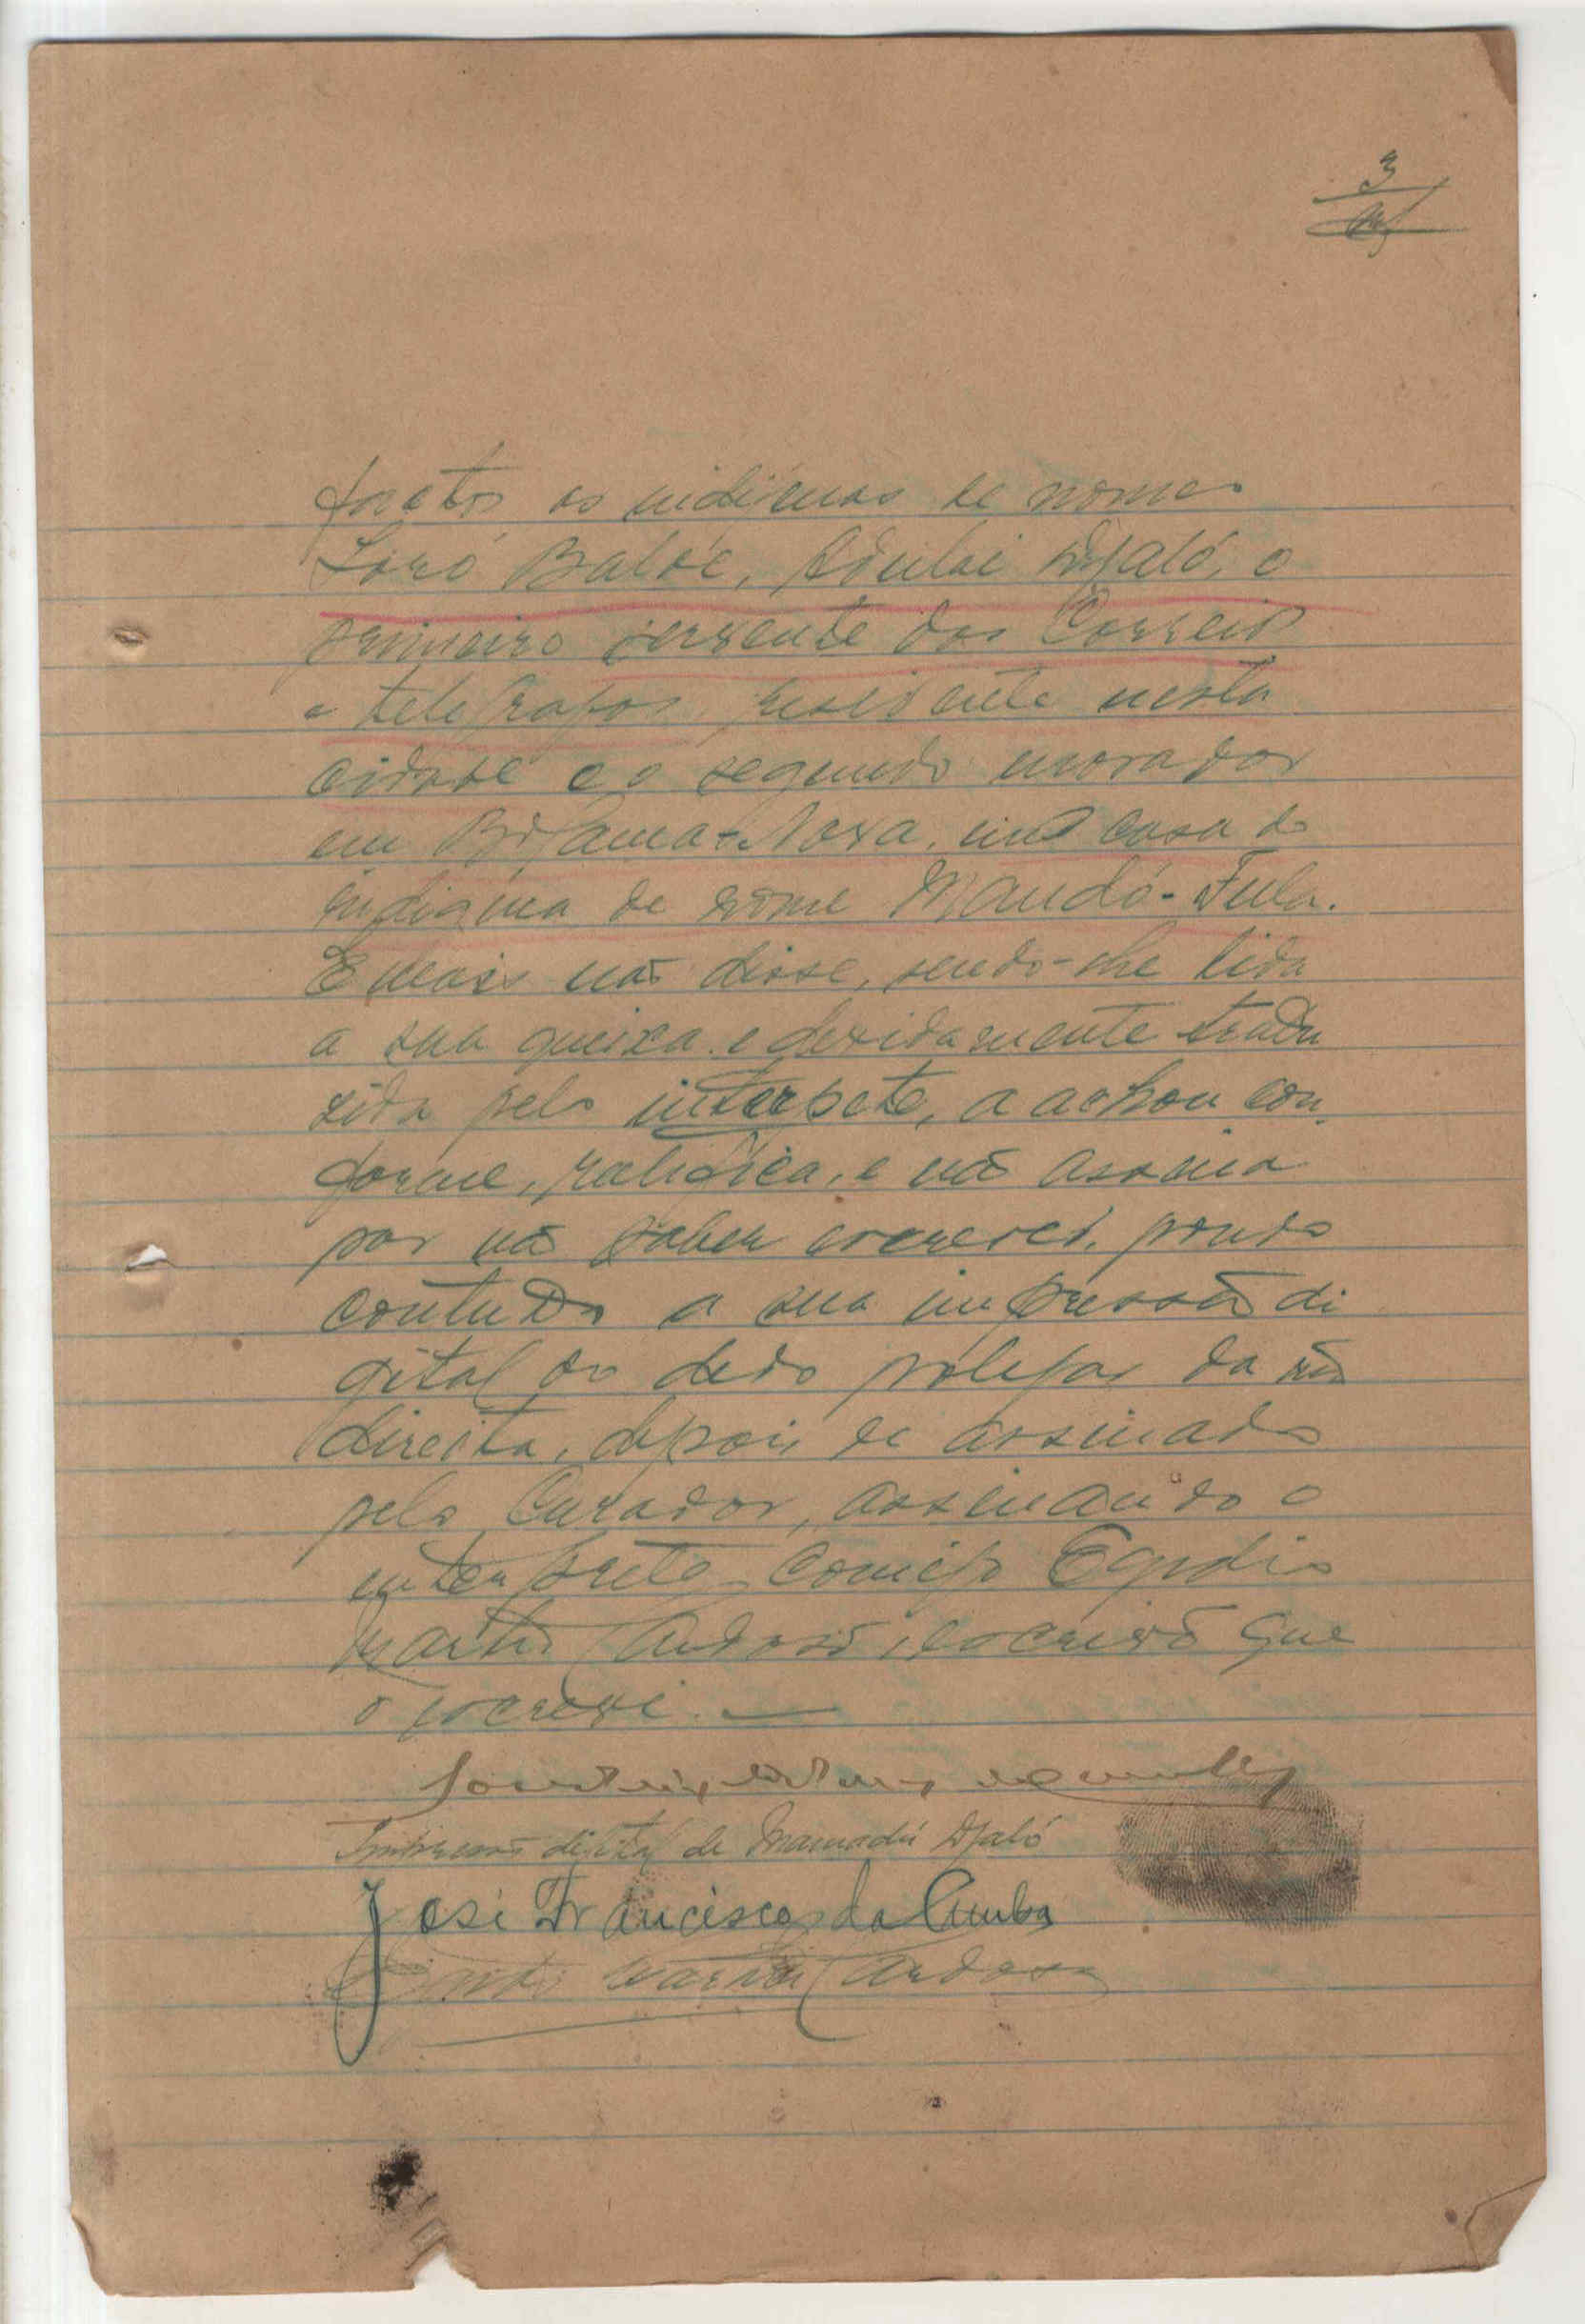 3
factos os indigenas de nomes
Soró Baldé, Adulai Djaló, o
primeiro servente dos Correios
e telegrafos, residente nesta
cidade e o segundo morador
em Bijama-Nova, em casa do
indigina de nome Mandó-Fula.
E mais não disse, sendo-lhe lida
a sua queixa e devidamente tradu
zida pelo interpete, a achou con
forme, ratifica, e não assina
por não saber escrever, pondo
contudo a sua impressão di
gital do dedo polegar da mão
direita, depois de assinado
pelo Curador, assinando o
interprete comigo Egidio
Martins Cardoso, escrivão que
o escrevi. —
Impressão digital de Mamadú Djaló
José Francisco da Cunha
Martins Cardoso